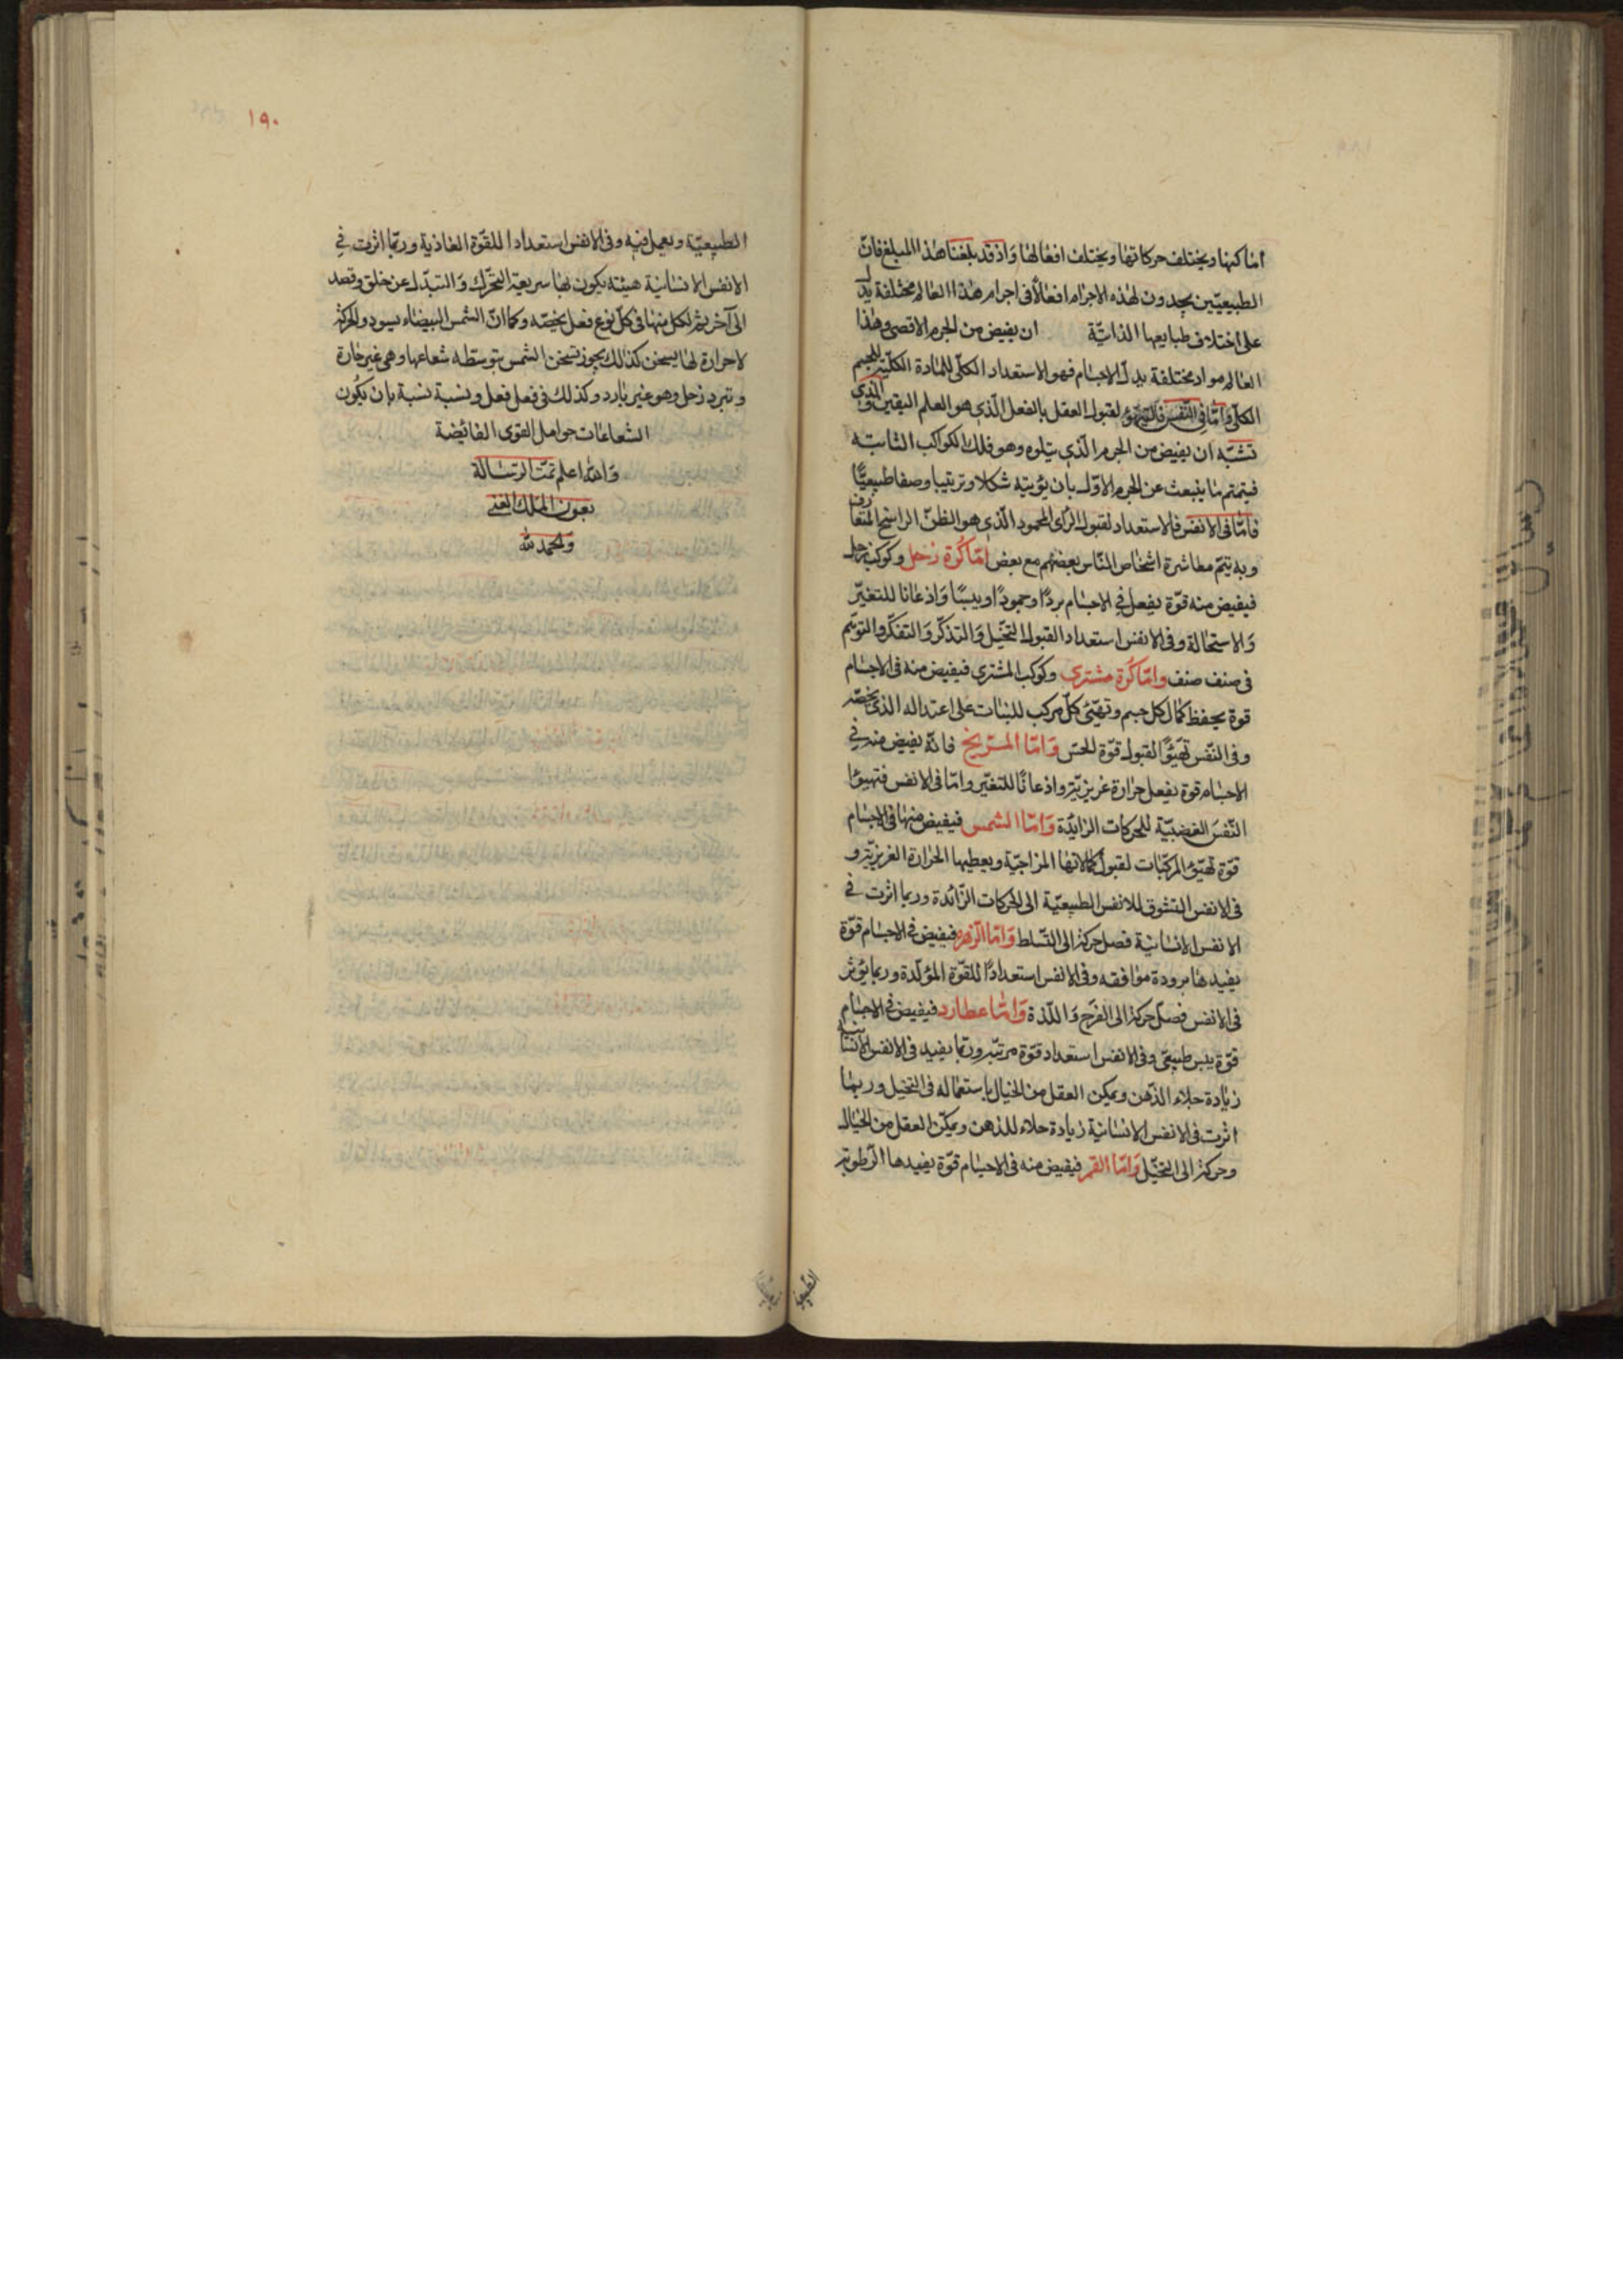 اماكنها ويختلف حركاتها ويختلف افعالها وَاذ قد بلغنا هذا المبلغ فانّ
الطبيعيّين يجدون لهذه الاجرام افعالًا فى اجرام هذا العالم مختلفة يدل
على اختلاف طبايعها الذاتيّة ان يفيض من الجرم الاقصى وهذا
العالم مواد مختلفة الاجسام فهو الاستعداد الكلّى للمادة الكلّية للجسم
الكلّى وَامّا فى النّفس فالتهيّؤ لقبول العقل بالفعل الّذى هو العلم اليقين والذى
تشبّه ان يفيض من الجرم الّذى يتلوه وهو فلك الكواكب الثابته
فيتمّم ما ينبعث عن الجرم الاوّل بان يؤتيه شكلا وترتيبا وصفا طبيعيًّا
فامّا فى الانفس فالاستعداد لقبول الرّاى المحمود الّذى هو الظنّ الراسخ المتعارف
وبه يتمّ معاشرة اشخاص النّاس بعضهم مع بعض امّا كُرة زحل وكوكب زحل
فيفيض منه قوّة يفعل فى الاجسام بردًا وجمودًا ويبسًا وَاذعانا للتغيّر
وَالاستحالة وفى الانفس استعداد القبول التخيّل وَالتذكّر وَالتفكّر والتوهّم
فى صنف صنف وامّا كُرة مشترى وكوكب المشترى فيفيض منه فى الاجسام
قوة يحفظ كمال كل جسم وتهيّئ كلّ مركب للثبات على اعتداله الذى يخصّه
وفى النّفس تهيّؤًا لقبول قوّة الحسّ وَامّا المرّيخ فانّه يفيض منه فى
الاجسام قوة يفعل حرارة غريزيّة واذعانًا للتغيّر وامّا فى الانفس فتهيوا
النّفسَ الغضبيّة للحركات الزائدة وَامّا الشمس فيفيض منها فى الاجسام
قوّة تهيّؤ المركّبات لقبول كمالاتها المزاجيّة ويعطيها الحرارة الغريزيّة و
فى الانفس التشوق للانفس الطبيعيّة الى الحركات الزّائدة وربما اثرت فى
الانفس الانسانيّة فصل حركة الى التّسلط وَامّا الزّهره فيفيض فى الاجسام قوّة
يفيدها برودة موافقه وفى الانفس استعدادًا للقوّة المؤلّدة وربما يؤثر
فى الانفس فصل حركة الى الفرح وَاللذة وَامّا عطارد فيفيض فى الاجسام
قوّة يبس طبيعى وفى الانفس استعداد قوّة مرتبّه وربّما يفيد فى الانفس الانسانيه
زيادة جلاء الذّهن ويمكن العقل من الخيال باستعماله فى التخيل وربما
اثرت فى الانفس الانسانيّة زيادة جلاء للذهن ويمكّن العقل من الخيال
وحركة الى التخيّل وَامّا القمر فيفيض منه فى الاجسام قوّة يفيدها الرّطوبة
الطبيعيا
١٩٠
الطبيعيّة ويعمل فيه وفى الانفس استعدادا للقوّة الغاذية وربّما اثرت فى
الانفس الانسانية هيئة يكون لها سريعة التحرّك وَالتبدّل عن خلق وقصد
الى آخر ثم لكل منها فى كلّ نوع فعل يخصّه وكما انّ الشمس البيضاء يسود والحركة
لا حرارة لها يسخن كذالك يجوز تسخن الشمس بتوسطه شعاعها وهى غير حارة
وتبرد زحل وهو غير بارد وكذلك فى فعل فعل ونسبة نسبة بان يكون
الشعاعات حوامل القوى الفائضة
وَالله اعلم تمّت الرّسالة
بعون الملك الغنى
والحمد لله